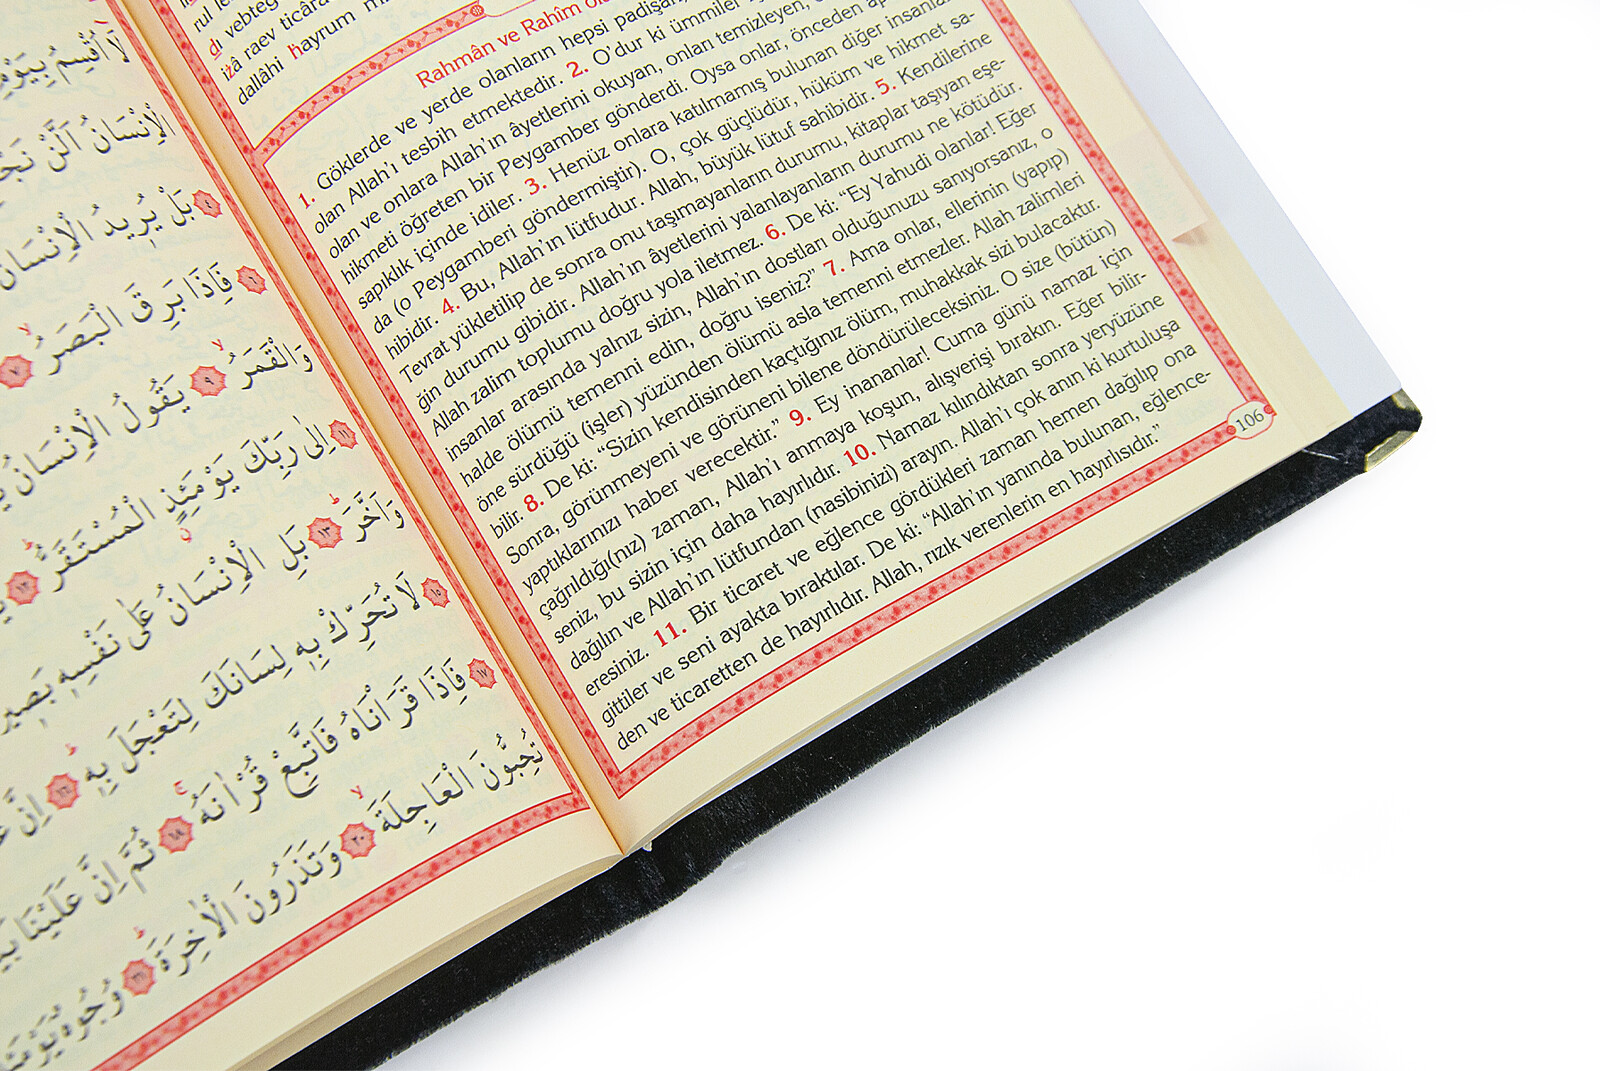 rul le
dı vebteğ
iżâ raev ticâra
dallâhi hayrum m
Rahmân ve Rahîm ola
1. Göklerde ve yerde olanların hepsi padişah,
olan Allah'ı tesbih etmektedir. 2. O'dur ki ümmiler
olan ve onlara Allah'ın âyetlerini okuyan, onları temizleyen,
hikmeti öğreten bir Peygamber gönderdi. Oysa onlar, önceden
sapıklık içinde idiler. 3. Henüz onlara katılmamış bulunan diğer insanlar
da (o Peygamberi göndermiştir). O, çok güçlüdür, hüküm ve hikmet sa-
hibidir. 4. Bu, Allah'ın lütfudur. Allah, büyük lütuf sahibidir. 5. Kendilerine
Tevrat yükletilip de sonra onu taşımayanların durumu, kitaplar taşıyan eşe-
ğin durumu gibidir. Allah'ın âyetlerini yalanlayanların durumu ne kötüdür.
Allah zalim toplumu doğru yola iletmez. 6. De ki: “Ey Yahudi olanlar! Eğer
insanlar arasında yalnız sizin, Allah'ın dostları olduğunuzu sanıyorsanız, o
halde ölümü temenni edin, doğru iseniz?” 7. Ama onlar, ellerinin (yapıp)
öne sürdüğü (işler) yüzünden ölümü asla temenni etmezler. Allah zalimleri
bilir. 8. De ki: “Sizin kendisinden kaçtığınız ölüm, muhakkak sizi bulacaktır.
Sonra, görünmeyeni ve görüneni bilene döndürüleceksiniz. O size (bütün)
yaptıklarınızı haber verecektir.” 9. Ey inananlar! Cuma günü namaz için
çağrıldığı(nız) zaman, Allah'ı anmaya koşun, alışverişi bırakın. Eğer bilir-
seniz, bu sizin için daha hayırlıdır. 10. Namaz kılındıktan sonra yeryüzüne
dağılın ve Allah'ın lütfundan (nasibinizi) arayın. Allah'ı çok anın ki kurtuluşa
eresiniz. 11. Bir ticaret ve eğlence gördükleri zaman hemen dağılıp ona
gittiler ve seni ayakta bıraktılar. De ki: “Allah'ın yanında bulunan, eğlence-
den ve ticaretten de hayırlıdır. Allah, rızık verenlerin en hayırlısıdır.”
106
لَا أُقْسِمُ بِيَوْمِ
الْاِنْسَانُ اَلَّنْ نَجْ
٤ بَلْ يُرِيدُ الْاِنْسَانُ
٦ فَاِذَا بَرِقَ الْبَصَرُ ٧
وَالْقَمَرُ ٩ يَقُولُ الْاِنْسَانُ
١١ اِلٰى رَبِّكَ يَوْمَئِذٍ الْمُسْتَقَرُّ ١٢
وَاَخَّرَ ١٣ بَلِ الْاِنْسَانُ عَلٰى نَفْسِهٖ بَصٖيرَ
١٥ لَا تُحَرِّكْ بِهٖ لِسَانَكَ لِتَعْجَلَ بِهٖ ١٦ اِنَّ
١٧ فَاِذَا قَرَاْنَاهُ فَاتَّبِعْ قُرْاٰنَهُ ١٨ ثُمَّ اِنَّ عَلَيْنَا
تُحِبُّونَ الْعَاجِلَةَ ٢٠ وَتَذَرُونَ الْاٰخِرَةَ ٢١ وُجُوهٌ يَوْمَئِ